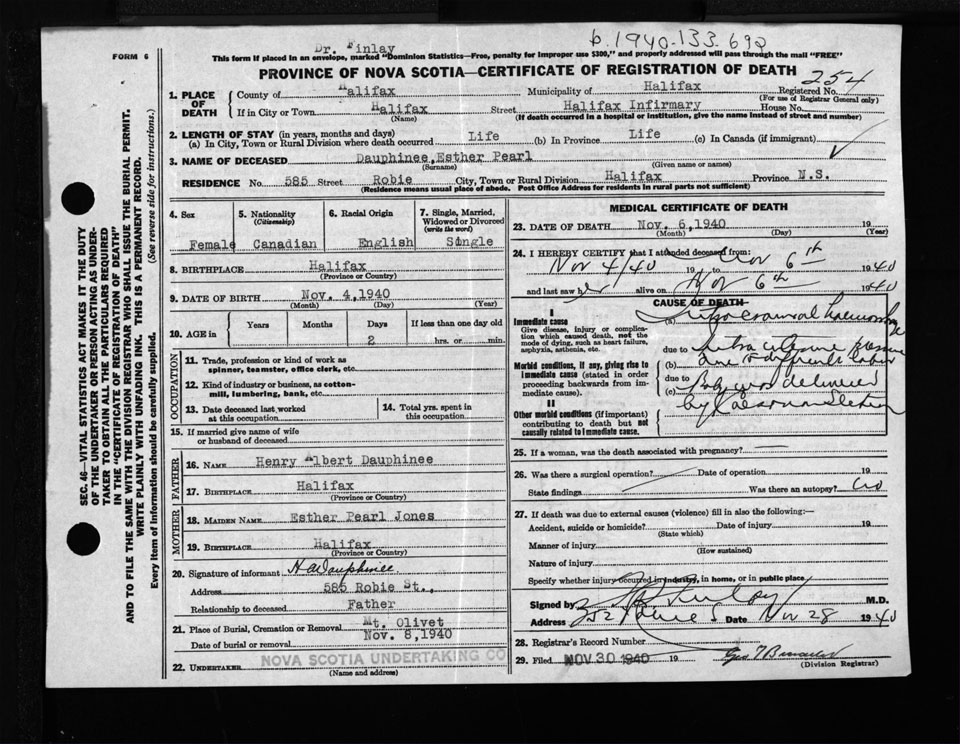 Dr. Finlay
b. 1940-133-692
FORM 6
This form if placed in an envelope, marked "Dominion Statistics—Free, penalty for improper use $300," and properly addressed will pass through the mail "FREE"
PROVINCE OF NOVA SCOTIA—CERTIFICATE OF REGISTRATION OF DEATH
254
1. PLACE OF DEATH
County of Halifax Municipality of Halifax Registered No.
(For use of Registrar General only)
If in City or Town Halifax Street Halifax Infirmary House No.
(Name) (If death occurred in a hospital or institution, give the name instead of street and number)
2. LENGTH OF STAY (in years, months and days)
(a) In City, Town or Rural Division where death occurred Life (b) In Province Life (c) In Canada (if immigrant)
3. NAME OF DECEASED Dauphinee, Esther Pearl
(Surname) (Given name or names)
RESIDENCE No. 585 Street Robie City, Town or Rural Division Halifax Province N.S.
(Residence means usual place of abode. Post Office Address for residents in rural parts not sufficient)
4. Sex Female
5. Nationality (Citizenship) Canadian
6. Racial Origin English
7. Single, Married, Widowed or Divorced (write the word) Single
8. BIRTHPLACE Halifax
(Province or Country)
9. DATE OF BIRTH Nov. 4,1940
(Month) (Day) (Year)
10. AGE in Years Months Days If less than one day old
2 hrs. or min.
OCCUPATION
11. Trade, profession or kind of work as spinner, teamster, office clerk, etc.
12. Kind of industry or business, as cotton-mill, lumbering, bank, etc.
13. Date deceased last worked at this occupation
14. Total yrs. spent in this occupation
15. If married give name of wife or husband of deceased
FATHER
16. NAME Henry Albert Dauphinee
17. BIRTHPLACE Halifax
(Province or Country)
MOTHER
18. MAIDEN NAME Esther Pearl Jones
19. BIRTHPLACE Halifax
(Province or Country)
20. Signature of informant H A Dauphinee
Address 585 Robie St.,
Relationship to deceased Father
21. Place of Burial, Cremation or Removal Mt. Olivet
Date of burial or removal Nov. 8,1940
22. UNDERTAKER NOVA SCOTIA UNDERTAKING CO
(Name and address)
MEDICAL CERTIFICATE OF DEATH
23. DATE OF DEATH Nov. 6,1940 19
(Month) (Day) (Year)
24. I HEREBY CERTIFY that I attended deceased from:
Nov 4/40 19 to Nov 6th 1940
and last saw her alive on Nov 6th 1940
CAUSE OF DEATH
I
Immediate cause
Give disease, injury or complication which caused death, not the mode of dying, such as heart failure, asphyxia, asthenia, etc.
(a) Intracranial haemorrhage
due to
Morbid conditions, if any, giving rise to immediate cause (stated in order proceeding backwards from immediate cause)
(b) Intra uterine pressure
due to difficult labor
due to
(c) Baby was delivered
by Caesarean Section
II
Other morbid conditions (if important) contributing to death but not causally related to immediate cause.
25. If a woman, was the death associated with pregnancy?
26. Was there a surgical operation? Date of operation 19
State findings Was there an autopsy? No
27. If death was due to external causes (violence) fill in also the following:—
Accident, suicide or homicide? Date of injury 19
(State which)
Manner of injury
(How sustained)
Nature of injury
Specify whether injury occurred in industry, in home, or in public place
Signed by Finlay M.D.
Address 252 Date Nov 28 1940
28. Registrar's Record Number
29. Filed NOV 30 1940 19
(Division Registrar)
SEC. 46—VITAL STATISTICS ACT MAKES IT THE DUTY
OF THE UNDERTAKER OR PERSON ACTING AS UNDER-
TAKER TO OBTAIN ALL THE PARTICULARS REQUIRED
IN THE "CERTIFICATE OF REGISTRATION OF DEATH"
AND TO FILE THE SAME WITH THE DIVISION REGISTRAR WHO SHALL ISSUE THE BURIAL PERMIT.
WRITE PLAINLY WITH UNFADING INK. THIS IS A PERMANENT RECORD.
Every item of information should be carefully supplied. (See reverse side for instructions.)